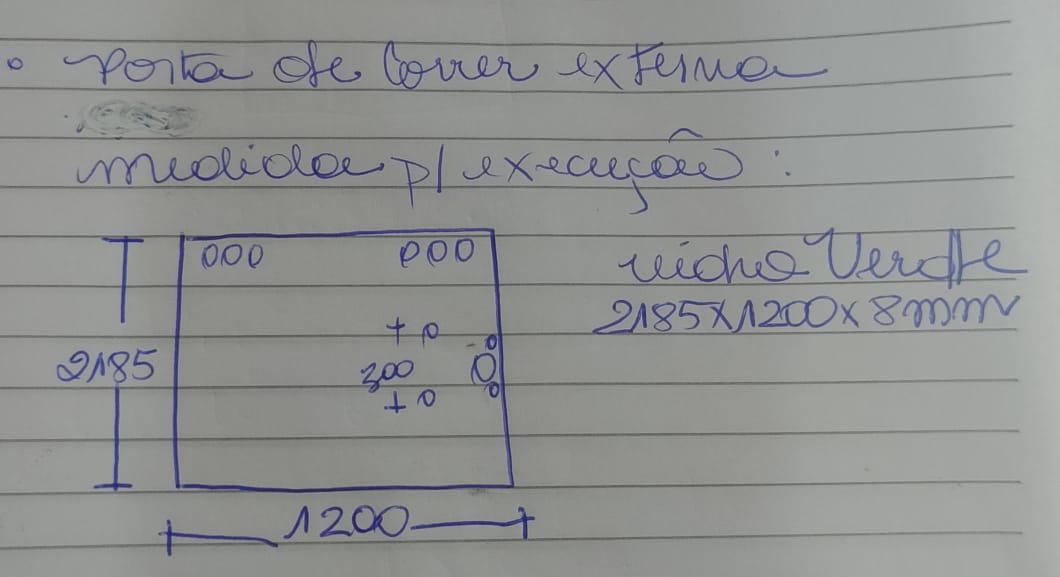 Porta de Correr externa
medida p/ execução:
000 000
vidro Verde
2185X1200x8mm
+ 0
2185
300
+ 0
1200